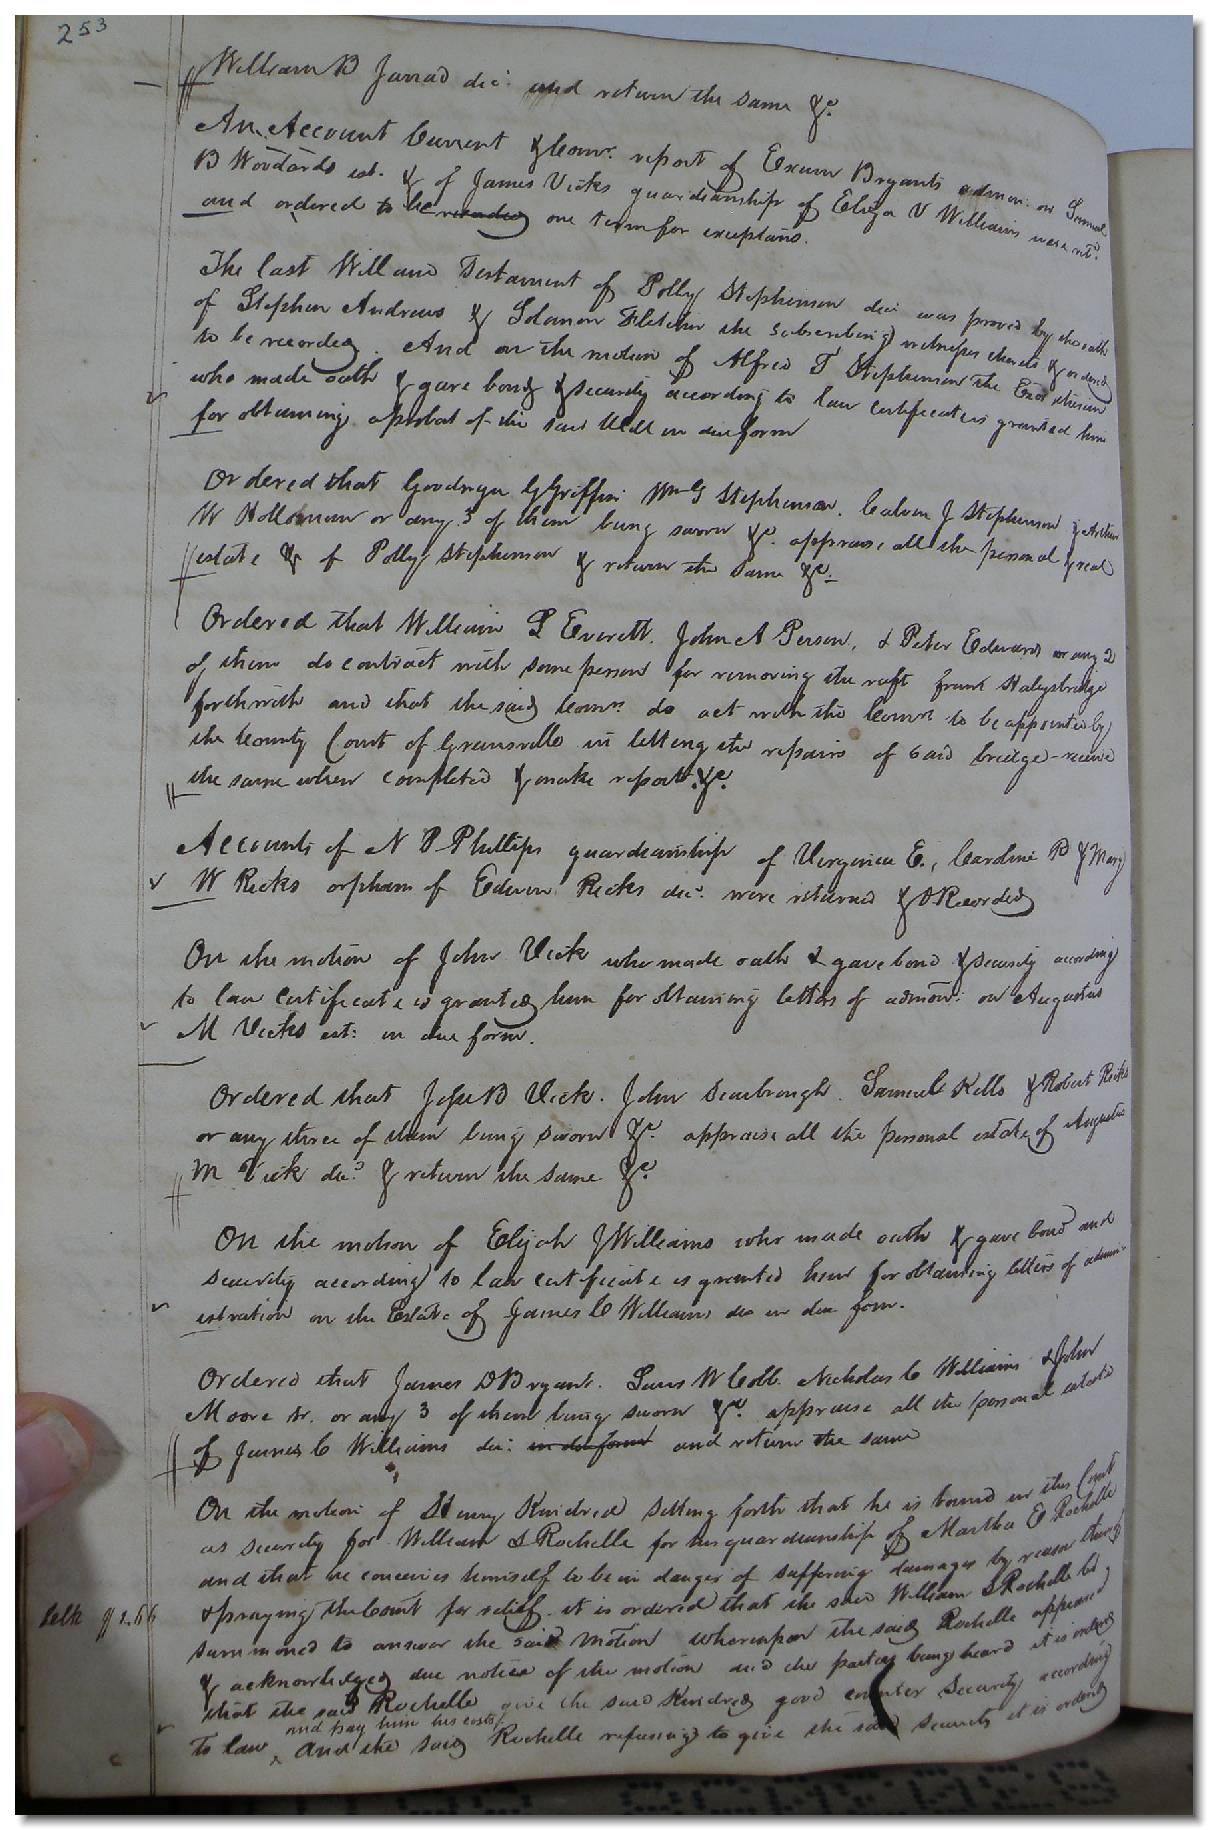 253
William B Jarrad dec:d and return the same &c.
An Account Current & Comrs. report of Exum Bryants admon: on Samuel
B Woodards est. & of James Vicks guardianship of Eliza V Williams were retd.
and ordered to lie one term for exceptions.
The last Will and Testament of Polly Stephenson dec was proved by the oath
of Stephen Andrews & Solomon Fletcher the subscribing witnesses thereto & ordered
to be recorded. And on the motion of Alfred T Stephenson the Exor therein
who made oath & gave bond & security according to law certificate is granted him
for obtaining a probat of the said Will in due form
Ordered that Goodwyn G Griffin Wm G Stephenson. Calvin J Stephenson & Arthur
W Holloman or any 3 of them being sworn &c. appraise all the personal & real
estate & of Polly Stephenson & return the same &c:
Ordered that William L Everett. John A Person, & Peter Edwards or any 2
of them do contract with some person for removing the raft from Haleys bridge
forthwith and that the said Comrs. do act with the Comrs to be appointed by
the County Court of Greensville in letting the repairs of said bridge - receive
the same when completed & make report &c.
Accounts of N P Phillips guardianship of Virginia E., Caroline B & Mary
W Ricks orphans of Edwin Ricks decd. were returned & O Recorded
On the motion of John Vick who made oath & gave bond & security according
to law certificate is granted him for obtaining letters of admon: on Augustus
M Vicks est: in due form.
Ordered that Jesse B Vick. John Scarbrough. Samuel Kello & Robert Ricks
or any three of them being sworn &c. appraise all the personal estate of Augustus
M Vick decd & return the same &c.
On the motion of Elijah J Williams who made oath & gave bond and
security according to law certificate is granted him for obtaining letters of admin-
istration on the Estate of James C Williams dec in due form.
Ordered that James D Bryant. Lewis W Cobb. Nicholas C Williams & John
Moore Sr. or any 3 of them being sworn &c. appraise all the personal estate
of James C Williams dec: in due form and return the same
On the motion of Henry Kindred setting forth that he is bound in this Court
as security for William S Rochelle for his guardianship of Martha E Rochelle
and that he conceives himself to be in danger of suffering damages by reason thereof
& praying the Court for relief. it is ordered that the said William S Rochelle be
summoned to answer the said motion whereupon the said Rochelle appeared
& acknowledged due notice of the motion and the parties being heard it is ordered
that the said Rochelle give the said Kindred good counter security according
and pay him his costs
to law ^ And the said Rochelle refusing to give the said security it is ordered